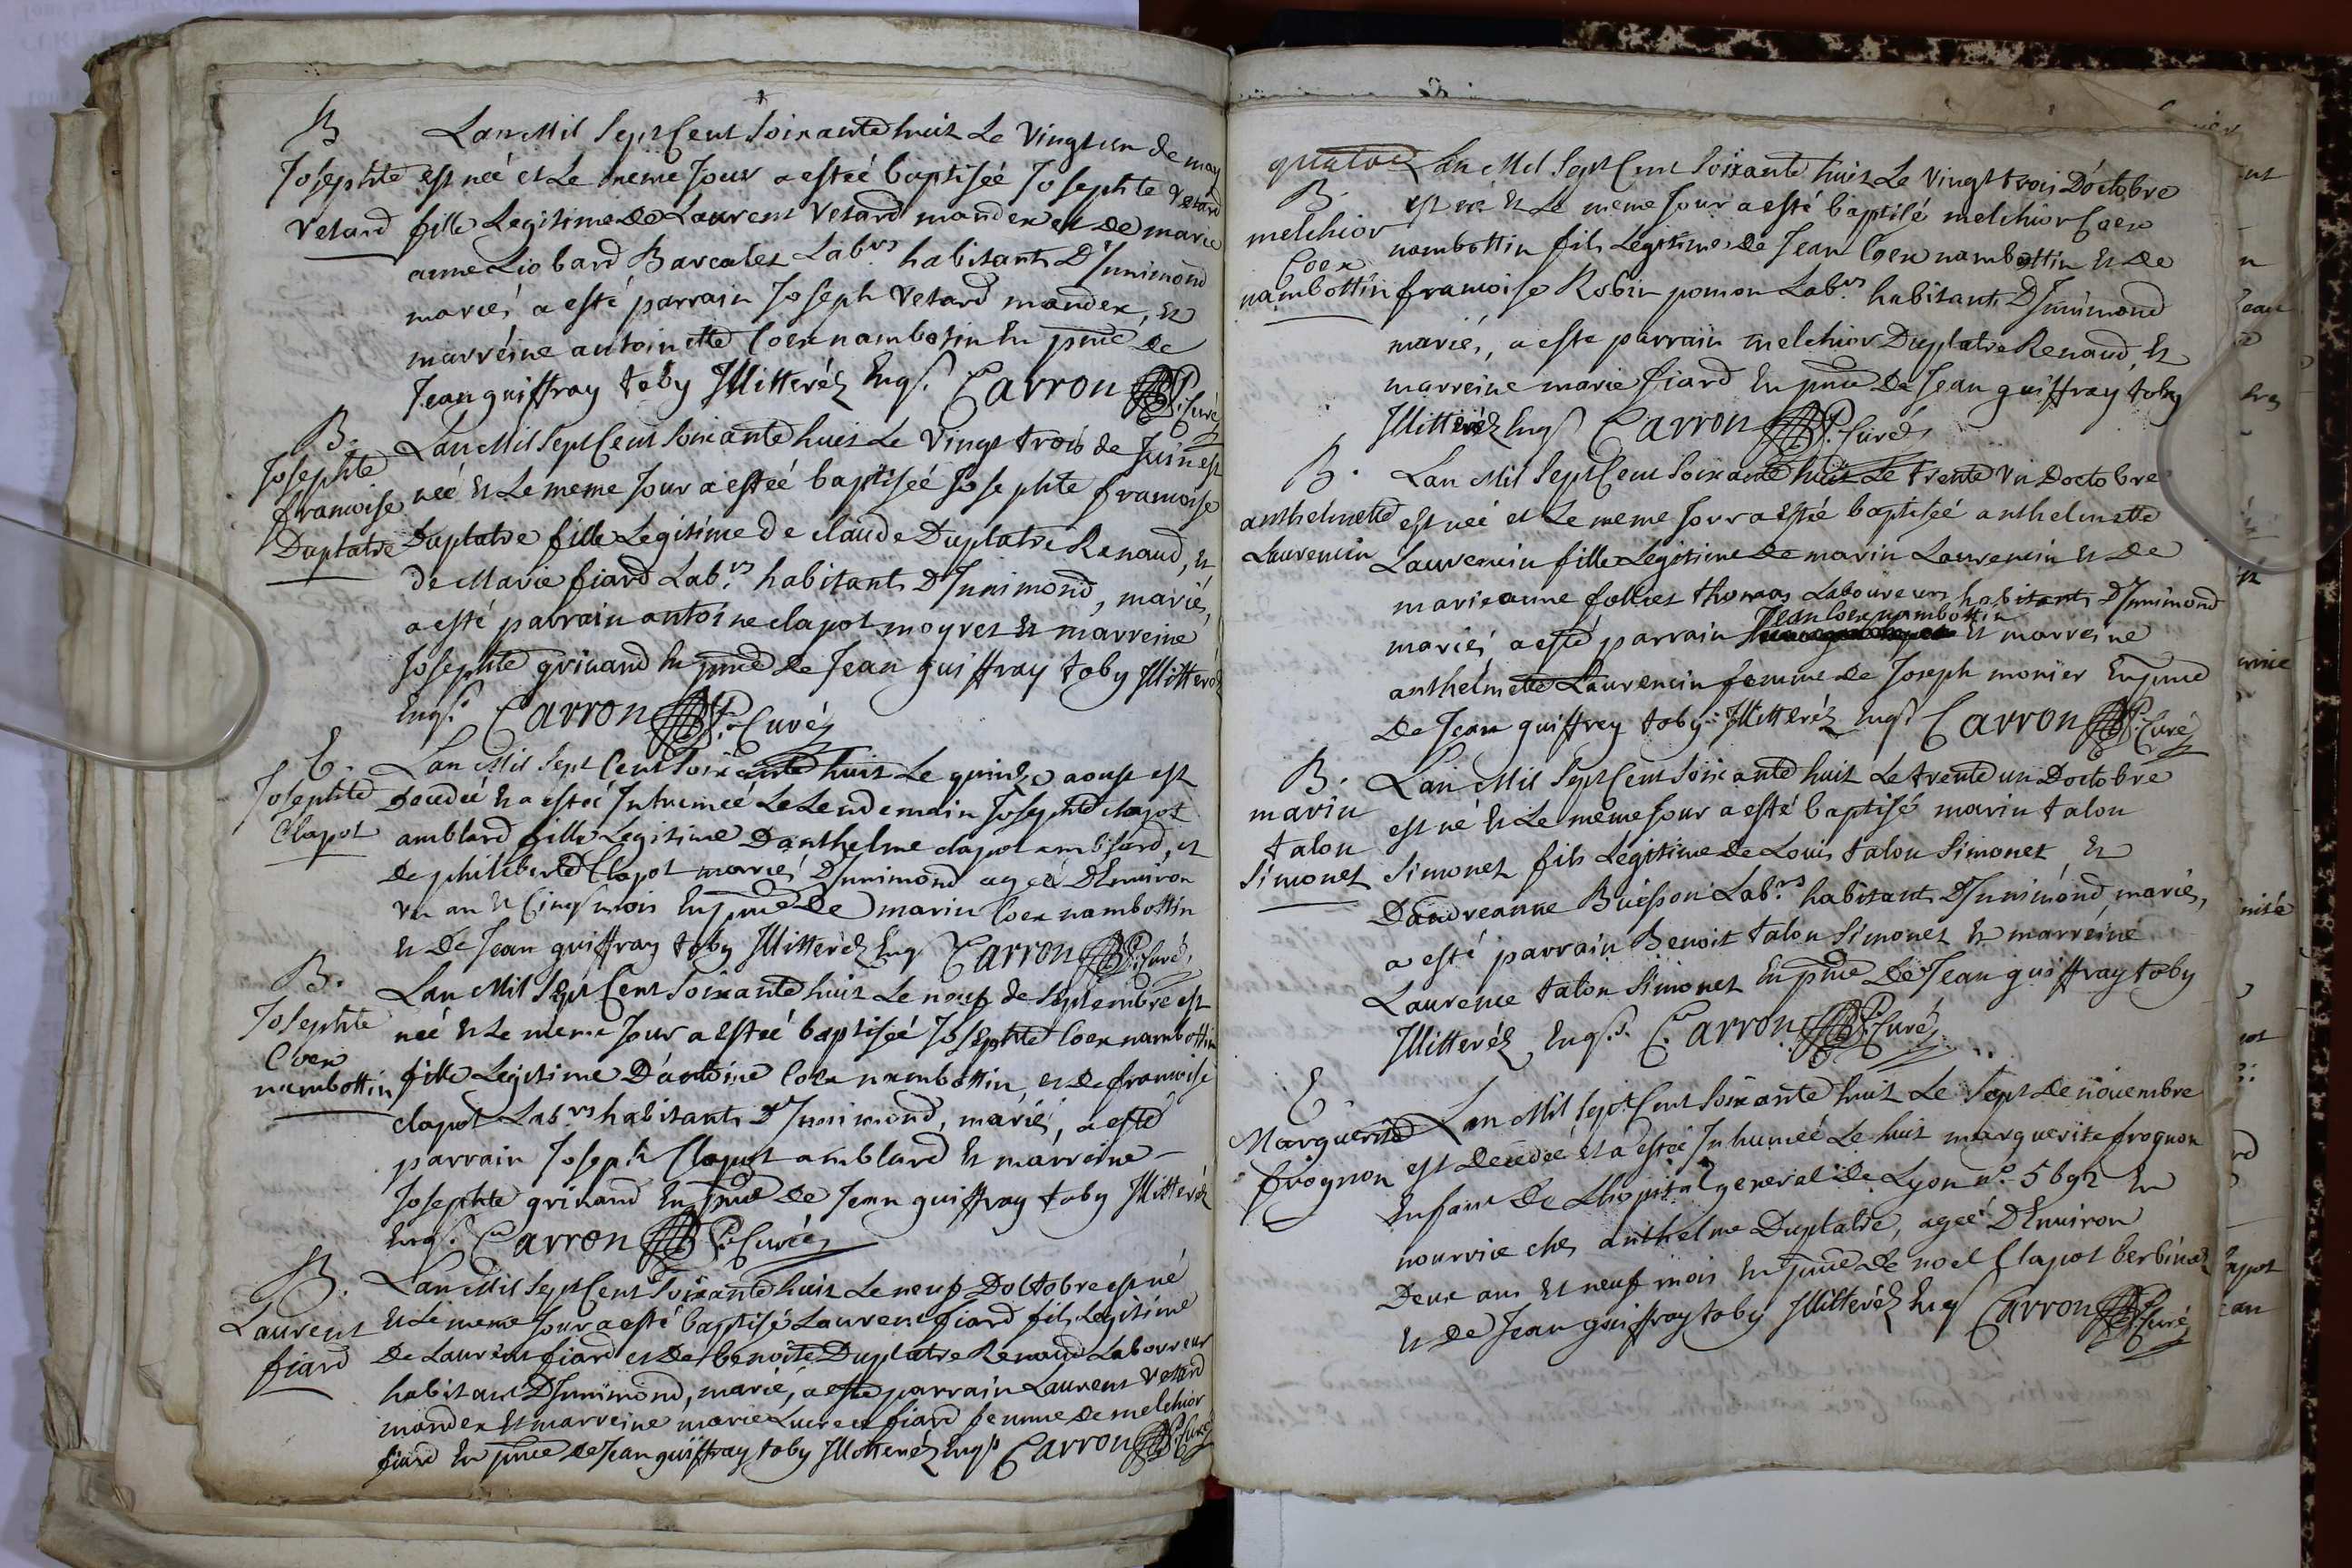 B
Josephte
Vetard
Lan Mil Sept Cent Soixante huit Le Vingt un de may
est neé et Le meme Jour a esteé baptiseé Josephte Vetard
fille Legitime de Laurent Vetard mander et de marie
anne Liobard Barcalet Lab.rs habitants D'Innimond
mariés a esté parrain Joseph Vetard mander, Et
marréine antoinette Coex nambotin En pnce de
Jean guiffray toby Illitteréz Enqs. Carron P. Curé
B.
Josephte
francoise
Duplatre
Lan Mil Sept Cent Soixante huit Le Vingt trois de Juin est
neé Et Le meme Jour a esteé baptiseé Josephte francoise
Duplatre fille Legitime de claude Duplatre Renaud, et
de Marie fiard Lab.rs habitants D'Innimond, mariés,
a esté parrain antoine clapot moyret Et marreine
Josephte grinand En pnce de Jean guiffray toby Illitteréz
Enqs. Carron P. Curé
E.
Josephte
Clapot
Lan Mil Sept Cent Soixante huit Le quinze aoust est
Decedeé Et a esteé Inhumeé Le Lendemain Josephte clapot
amblard fille Legitime Danthelme clapot amblard, et
de philiberte Clapot mariés D'Innimond ageé DEnviron
un an Et Cinq mois En pnce de marin Coex nambottin
Et De Jean guiffray toby Illitteréz Enqs Carron P. Curé
B.
Josephte
Coex
nambottin
Lan Mil Sept Cent Soixante huit Le neuf de Septembre est
neé Et Le meme Jour a esteé baptiseé Josephte Coex nambottin
fille Legitime D'antoine Coex nambottin, et de francoise
clapot Lab.rs habitants D'Innimond, mariés, a esté
parrain Joseph Clapot amblard Et marreine
Josephte grinand En pnce de Jean guiffray toby Illitteréz
Enqs. Carron P. Curé
B.
Laurent
fiard
Lan Mil Sept Cent Soixante huit Le neuf Doctobre est né
Et Le meme Jour a esté baptisé Laurent fiard fils Legitime
De Laurent fiard et De benoite Duplatre Renaud Laboureur
habitant D'Innimond, mariés, a esté parrain Laurent Vetard
mander Et marreine marie Lucrece fiard femme de melchior
fiard En pnce de Jean guiffray toby Illitteréz Enqs Carron P. Curé
B.
melchior
Coex
nambottin
Lan Mil Sept Cent Soixante huit Le Vingt trois D'octobre
est né Et Le meme Jour a esté baptisé melchior Coex
nambottin fils Legitime de Jean Coex nambottin Et De
francoise Robin pomon Lab.rs habitants D'Innimond
mariés, a esté parrain melchior Duplatre Renaud, Et
marreine marie fiard En pnce De Jean guiffray toby
Illitteréz Enqs Carron P. Curé
B.
anthelmette
Laurencin
Lan Mil Sept Cent Soixante huit Le trente un Doctobre
est neé et Le meme Jour a esteé baptiseé anthelmette
Laurencin fille Legitime de marin Laurencin Et De
marieanne folliet thomas Laboureurs habitants D'Innimond
Jean Coex nambottin
mariés a esté parrain Et marreine
anthelmette Laurencin femme de Joseph monier En pnce
De Jean guiffrey toby Illitteréz Enqs Carron P. Curé
B.
marin
talon
Simonet
Lan Mil Sept Cent Soixante huit Le trente un Doctobre
est né Et Le meme Jour a esté baptisé marin talon
Simonet fils Legitime de Louis talon Simonet Et
Dandreanne Buisson Lab.rs habitants D'Innimond, mariés,
a esté parrain Benoit talon Simonet Et marreine
Laurence talon Simonet En pnce De Jean guiffray toby
Illitteréz Enqs. Carron P. Curé
E.
Marguerite
frognon
Lan Mil Sept Cent Soixante huit Le Sept De novembre
est Decedeé Et a esteé Inhumeé Le huit marguerite frognon
Enfant De Lhopital general de Lyon n.° 5692 En
nourrice ches anthelme Duplatre, ageé DEnviron
Deux ans Et neuf mois En pnce De noel Clapot berbinet
Et De Jean guiffray toby Illitteréz Enqs Carron P. Curé